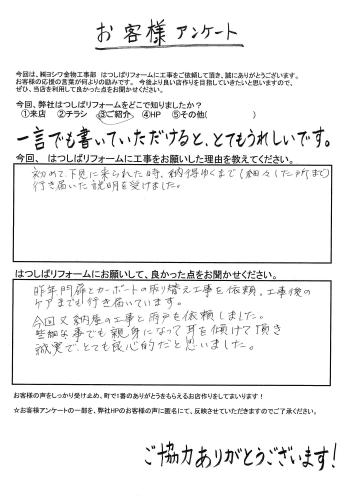 お客様アンケート
今回は、㈱ヨシワ金物工事部　はつしばリフォームに工事をご依頼して頂き、誠にありがとうございます。
お客様の応援の言葉が何よりの励みです。 今後より良い店作りを目指していきたいと思いますので、
ぜひ、当店を利用して良かった点をお聞かせください。
今回、弊社はつしばリフォームをどこで知りましたか？
①来店　②チラシ　③ご紹介　④HP　⑤その他(　　　　)
一言でも書いていただけると、とてもうれしいです。
今回、 はつしばリフォームに工事をお願いした理由を教えてください。
初めて下見に来られた時、納得ゆくまで(細々した所まで)
行き届いた説明を受けました。
はつしばリフォームにお願いして、良かった点をお聞かせください。
昨年門扉とカーポートの取り替え工事を依頼。工事後の
ケアまでも行き届いています。
今回又納屋の工事と雨戸も依頼しました。
些細な事でも親身になって耳を傾けて頂き
誠実で、とても良心的だと思いました。
お客様の声をしっかり受け止め、町で1番のありがとうをもらえるお店作りをしてまいります！
☆お客様アンケートの一部を、弊社HPのお客様の声に匿名にて、反映させていただきますのでご了承ください。
ご協力ありがとうございます!